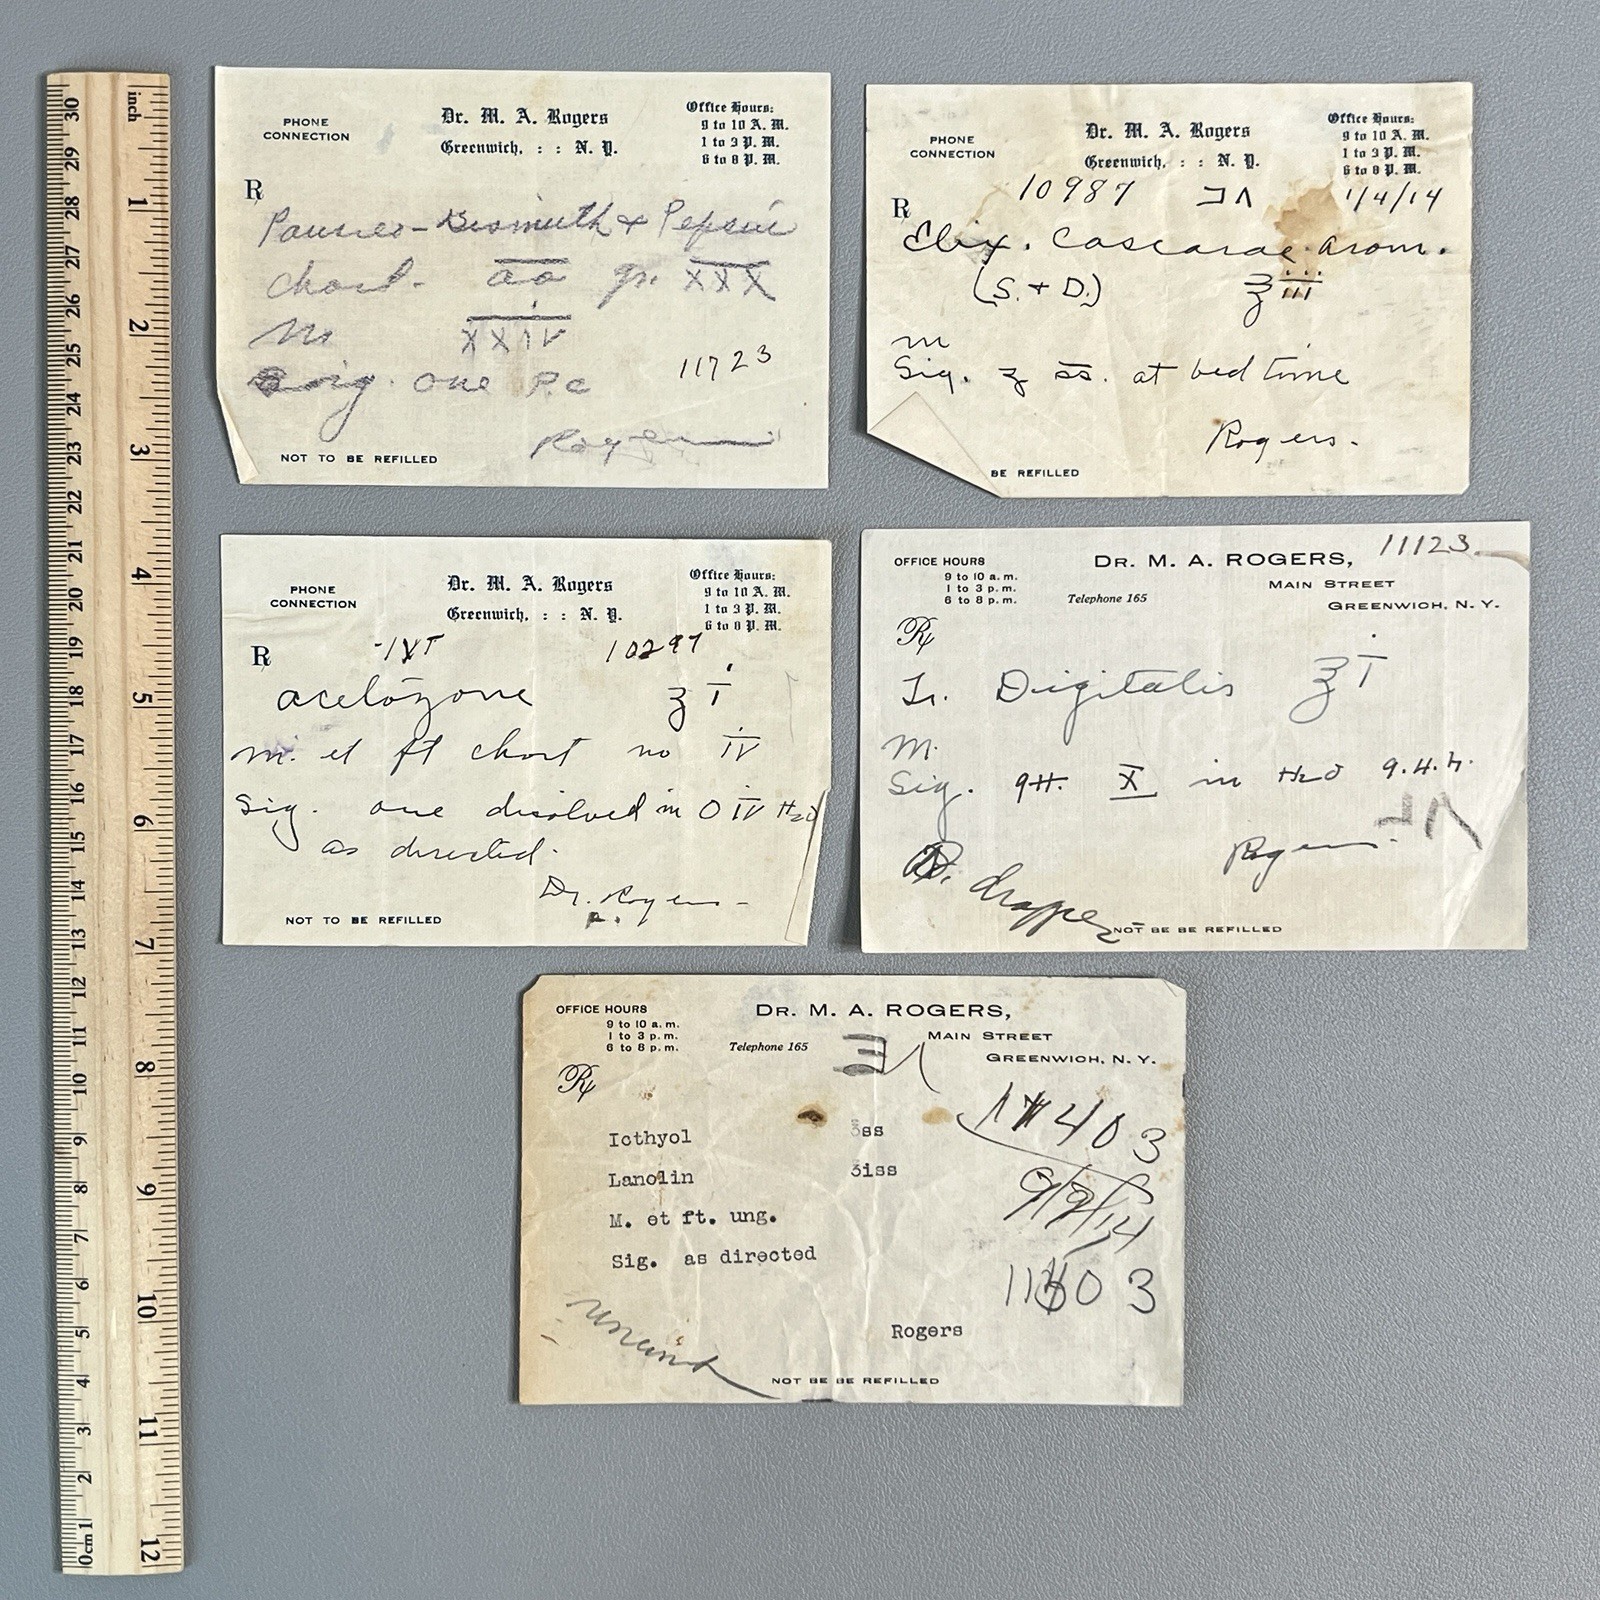 PHONE CONNECTION
Dr. M. A. Rogers
Greenwich, : : N. Y.
Office Hours:
9 to 10 A. M.
1 to 3 P. M.
6 to 8 P. M.
℞
Bismuth + Pepsin
chart. aa gr. XXX
m XXIV
Sig. one P.c
11723
Rogers
NOT TO BE REFILLED
PHONE CONNECTION
Dr. M. A. Rogers
Greenwich, : : N. Y.
Office Hours:
9 to 10 A. M.
1 to 3 P. M.
6 to 8 P. M.
℞
10987 1/4/14
Elix. Cascarae arom.
(S. + D.) ℥iii
m
Sig. ʒ ss. at bed time
Rogers.
BE REFILLED
PHONE CONNECTION
Dr. M. A. Rogers
Greenwich, : : N. Y.
Office Hours:
9 to 10 A. M.
1 to 3 P. M.
6 to 8 P. M.
℞
10297
acetozone ʒ i
m. et ft chart no IV
Sig. one disolved in O IV H2O
as directed.
Dr. Rogers
NOT TO BE REFILLED
OFFICE HOURS
9 to 10 a. m.
1 to 3 p. m.
6 to 8 p. m.
Telephone 165
DR. M. A. ROGERS,
MAIN STREET
GREENWICH, N. Y.
11123
℞
Tr. Digitalis ℥ i
M.
Sig. gtt. X in H2O q.4.h.
Rogers.
dropper
NOT BE BE REFILLED
OFFICE HOURS
9 to 10 a. m.
1 to 3 p. m.
6 to 8 p. m.
Telephone 165
DR. M. A. ROGERS,
MAIN STREET
GREENWICH, N. Y.
℞
Icthyol ʒss
Lanolin ʒiss
M. et ft. ung.
Sig. as directed
9/9/14
Rogers
NOT BE BE REFILLED